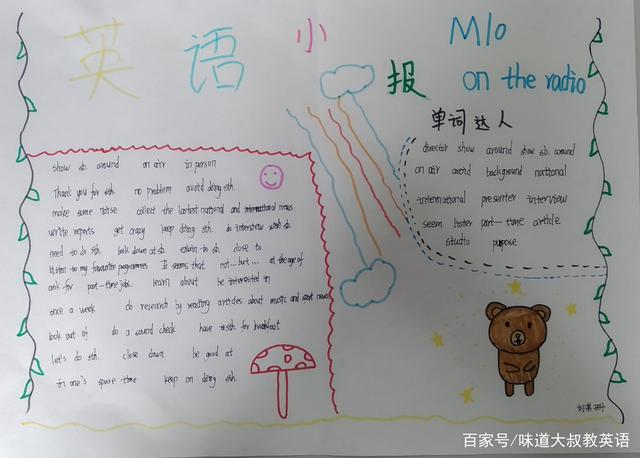 英语小报
M10
on the radio
单词达人
director show around show sb. around
on air avoid background national
international presenter interview
seem lister part-time article
studio purpose
show sb. around on air in person
Thank you for sth. no problem avoid doing sth.
make some noise collect the lastest national and international news
write reports get crazy keep doing sth. to interview with sb
need to do sth. look down at sb. explain to sb. close to
listen to my favourite programmes It seems that not...but... at the age of
ask for part-time jobs. learn about be interested in
once a week do research by reading articles about music and sort news
look out of do a sound check have sth. for breakfast
Let's do sth. close down be good at
in one's spare time keep on doing sth.
百家号/味道大叔教英语